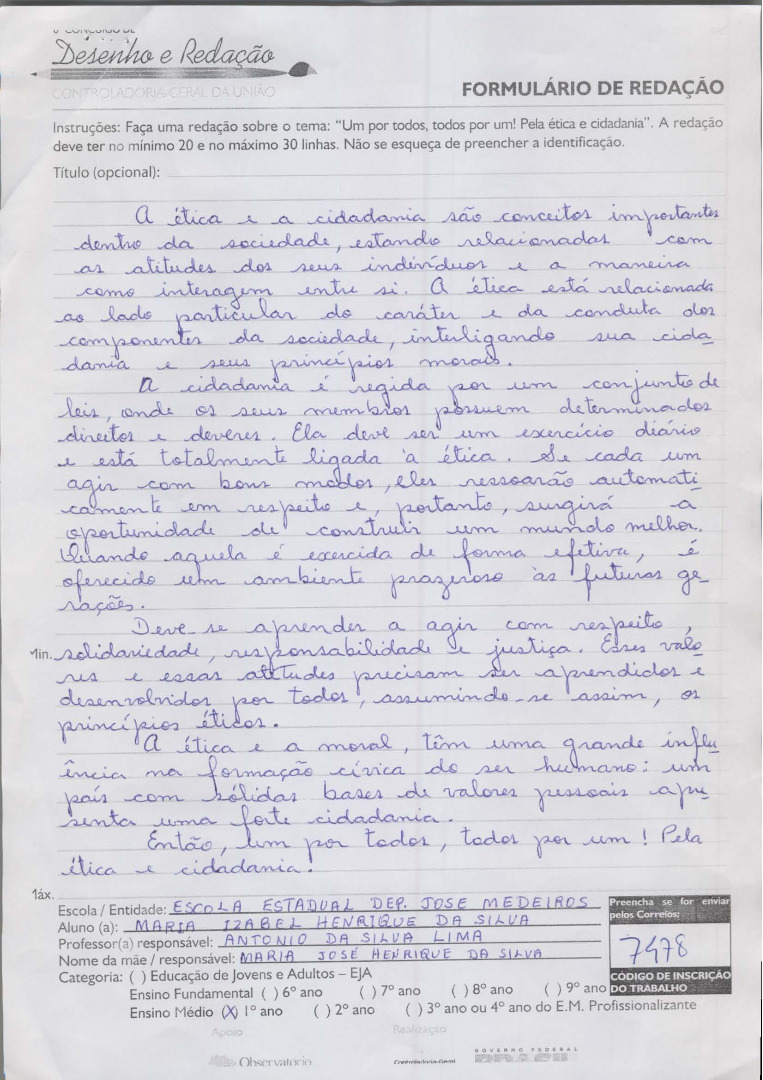 6º CONCURSO DE
Desenho e Redação
CONTROLADORIA-GERAL DA UNIÃO
FORMULÁRIO DE REDAÇÃO
Instruções: Faça uma redação sobre o tema: “Um por todos, todos por um! Pela ética e cidadania”. A redação
deve ter no mínimo 20 e no máximo 30 linhas. Não se esqueça de preencher a identificação.
Título (opcional):
A ética e a cidadania são conceitos importantes
dentro da sociedade, estando relacionadas com
as atitudes dos seus indivíduos e a maneira
como interagem entre si. A ética está relacionada
ao lado particular do caráter e da conduta dos
componentes da sociedade, interligando sua cida_
dania e seus princípios morais.
A cidadania é regida por um conjunto de
leis, onde os seus membros possuem determinados
direitos e deveres. Ela deve ser um exercício diário
e está totalmente ligada à ética. Se cada um
agir com bons modos, eles ressoarão automati_
camente em respeito e, portanto, surgirá a
oportunidade de construir um mundo melhor.
Quando aquela é exercida de forma efetiva, é
oferecido um ambiente prazeroso às futuras ge_
rações.
Deve-se aprender a agir com respeito,
Mín. solidariedade, responsabilidade e justiça. Esses valo_
res e essas atitudes precisam ser aprendidos e
desenvolvidos por todos, assumindo-se assim, os
princípios éticos.
A ética e a moral, têm uma grande influ_
ência na formação cívica do ser humano: um
país com sólidas bases de valores pessoais apre_
senta uma forte cidadania.
Então, um por todos, todos por um! Pela
ética e cidadania!
Máx.
Escola / Entidade: ESCOLA ESTADUAL DEP. JOSE MEDEIROS
Aluno (a): MARIA IZABEL HENRIQUE DA SILVA
Professor(a) responsável: ANTONIO DA SILVA LIMA
Nome da mãe / responsável: MARIA JOSÉ HENRIQUE DA SILVA
Preencha se for enviar
pelos Correios:
7478
CÓDIGO DE INSCRIÇÃO
DO TRABALHO
Categoria: ( ) Educação de Jovens e Adultos – EJA
Ensino Fundamental ( ) 6º ano ( ) 7º ano ( ) 8º ano ( ) 9º ano
Ensino Médio (X) 1º ano ( ) 2º ano ( ) 3º ano ou 4º ano do E.M. Profissionalizante
Apoio
Realização
Observatório
Controladoria-Geral
GOVERNO FEDERAL
BRASIL